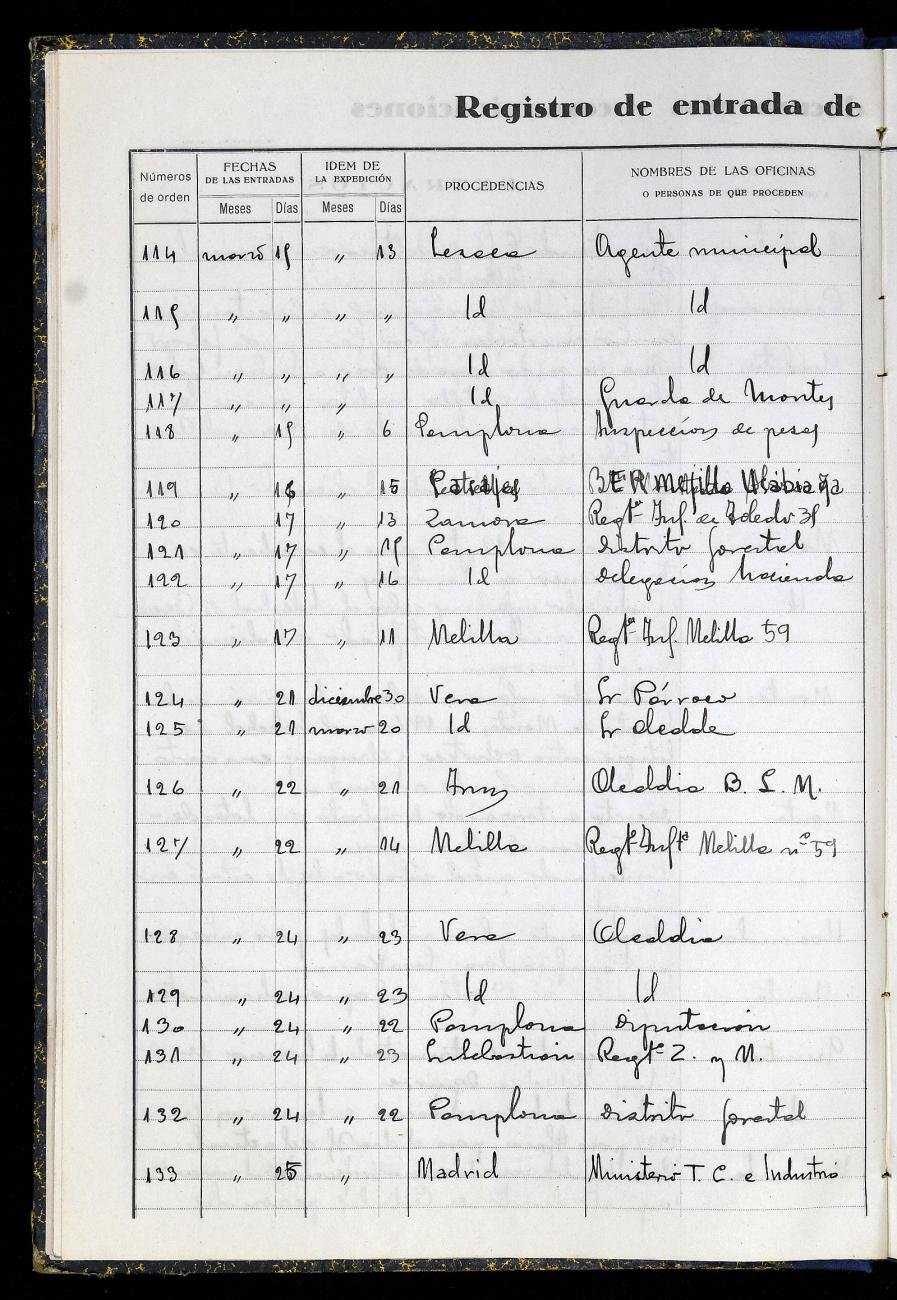 Registro de entrada de
Números de orden | FECHAS DE LAS ENTRADAS Meses Días | IDEM DE LA EXPEDICIÓN Meses Días | PROCEDENCIAS | NOMBRES DE LAS OFICINAS O PERSONAS DE QUE PROCEDEN
114 marzo 15 " 13 Lesaca Agente municipal
115 " " " " Id Id
116 " " " " Id Id
117 " " " Id Guarda de Montes
118 " 15 " 6 Pamplona Inspección de pesas
119 " 16 " 15 BERmejillo
120 17 " 13 Zamora Regtº Inf. de Toledo 35
121 " 17 " 15 Pamplona Distrito forestal
122 " 17 " 16 Id Delegación Hacienda
123 " 17 " 11 Melilla Regtº Inf. Melilla 59
124 " 21 diciembre 30 Vera Sr Párroco
125 " 21 marzo 20 Id Sr Alcalde
126 " 22 " 21 Irun Alcaldia B. L. M.
127 " 22 " 14 Melilla Regtº Infª Melilla nº 59
128 " 24 " 23 Vera Alcaldia
129 " 24 " 23 Id Id
130 " 24 " 22 Pamplona Diputación
131 " 24 " 23 S. Sebastián Regtº Z. y M.
132 " 24 " 22 Pamplona Distrito forestal
133 " 25 " Madrid Ministerio T. C. e Industria